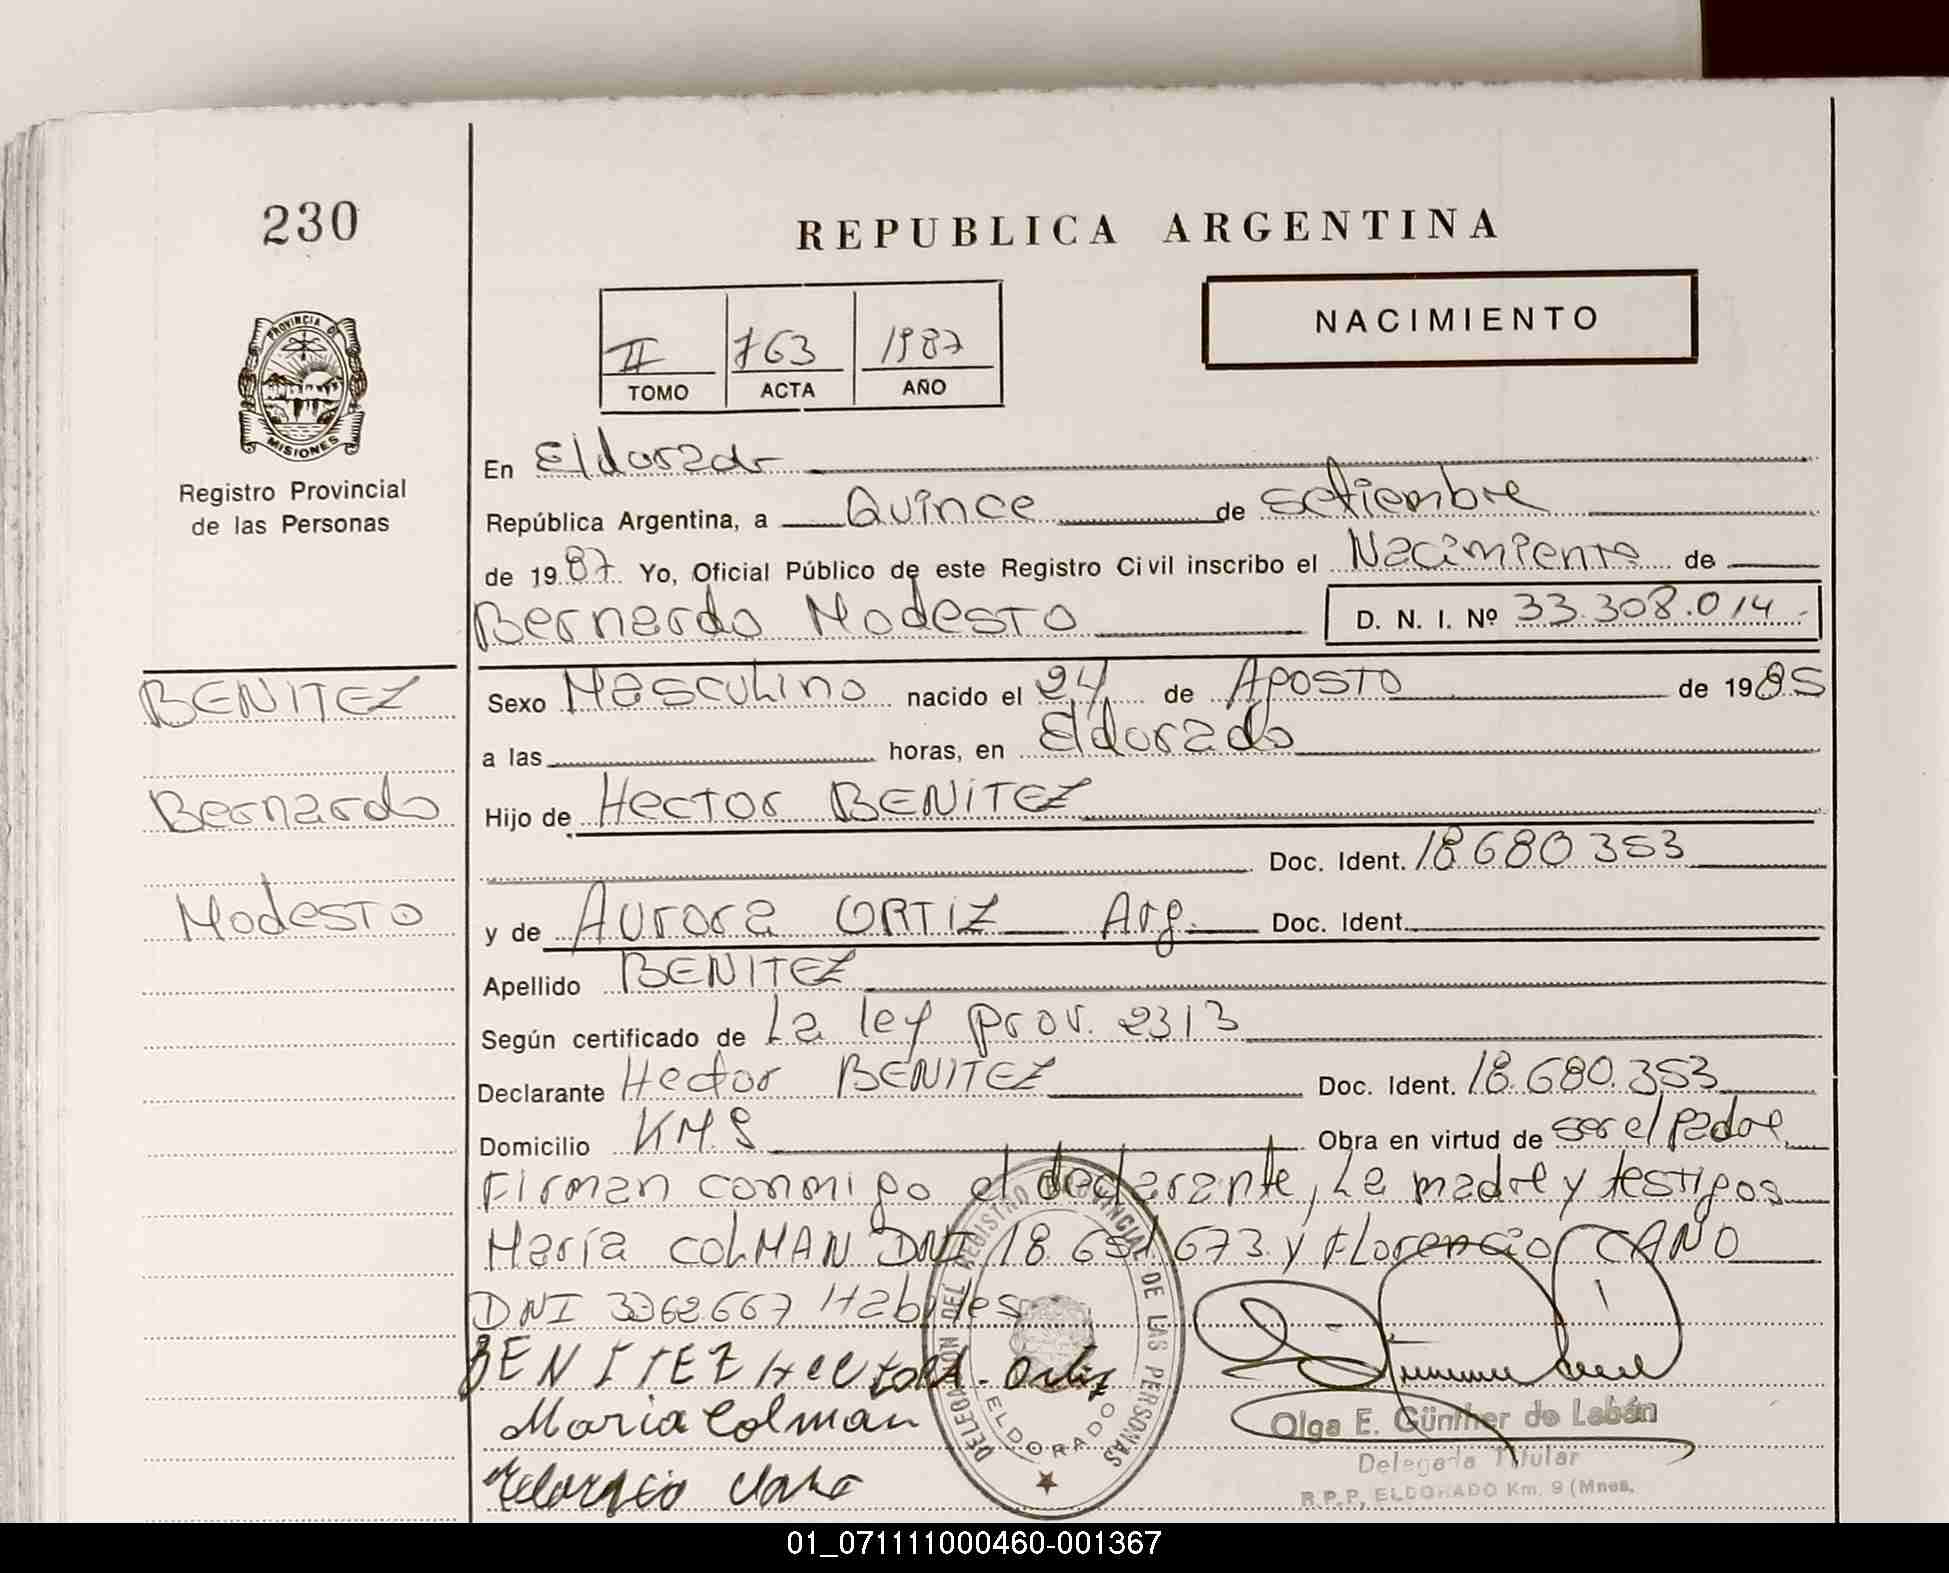 230
REPUBLICA ARGENTINA
PROVINCIA DE
MISIONES
Registro Provincial
de las Personas
II 763 1987
TOMO ACTA AÑO
NACIMIENTO
En Eldorado
República Argentina, a Quince de setiembre
de 1987 Yo, Oficial Público de este Registro Civil inscribo el Nacimiento de
Bernardo Modesto D. N. I. Nº 33.308.014.
BENITEZ
Bernardo
Modesto
Sexo Masculino nacido el 24 de Agosto de 1985
a las horas, en Eldorado
Hijo de Hector BENITEZ
Doc. Ident. 18 680 353
y de Aurora ORTIZ Arg. Doc. Ident.
Apellido BENITEZ
Según certificado de La ley prov. 2313
Declarante Hector BENITEZ Doc. Ident. 18.680.353
Domicilio KM. 9 Obra en virtud de ser el padre
Firman conmigo el declarante, La madre y testigos
María COLMAN DNI 18. 673 y Florencio CANO
DNI Habiles
BENITEZ Hector Ortiz
Maria Colman
DELEGACION DEL REGISTRO PROVINCIAL DE LAS PERSONAS
ELDORADO
Olga E. Günther de Labán
Delegada Titular
R.P.P. ELDORADO Km. 9 (Mnes.
01_071111000460-001367